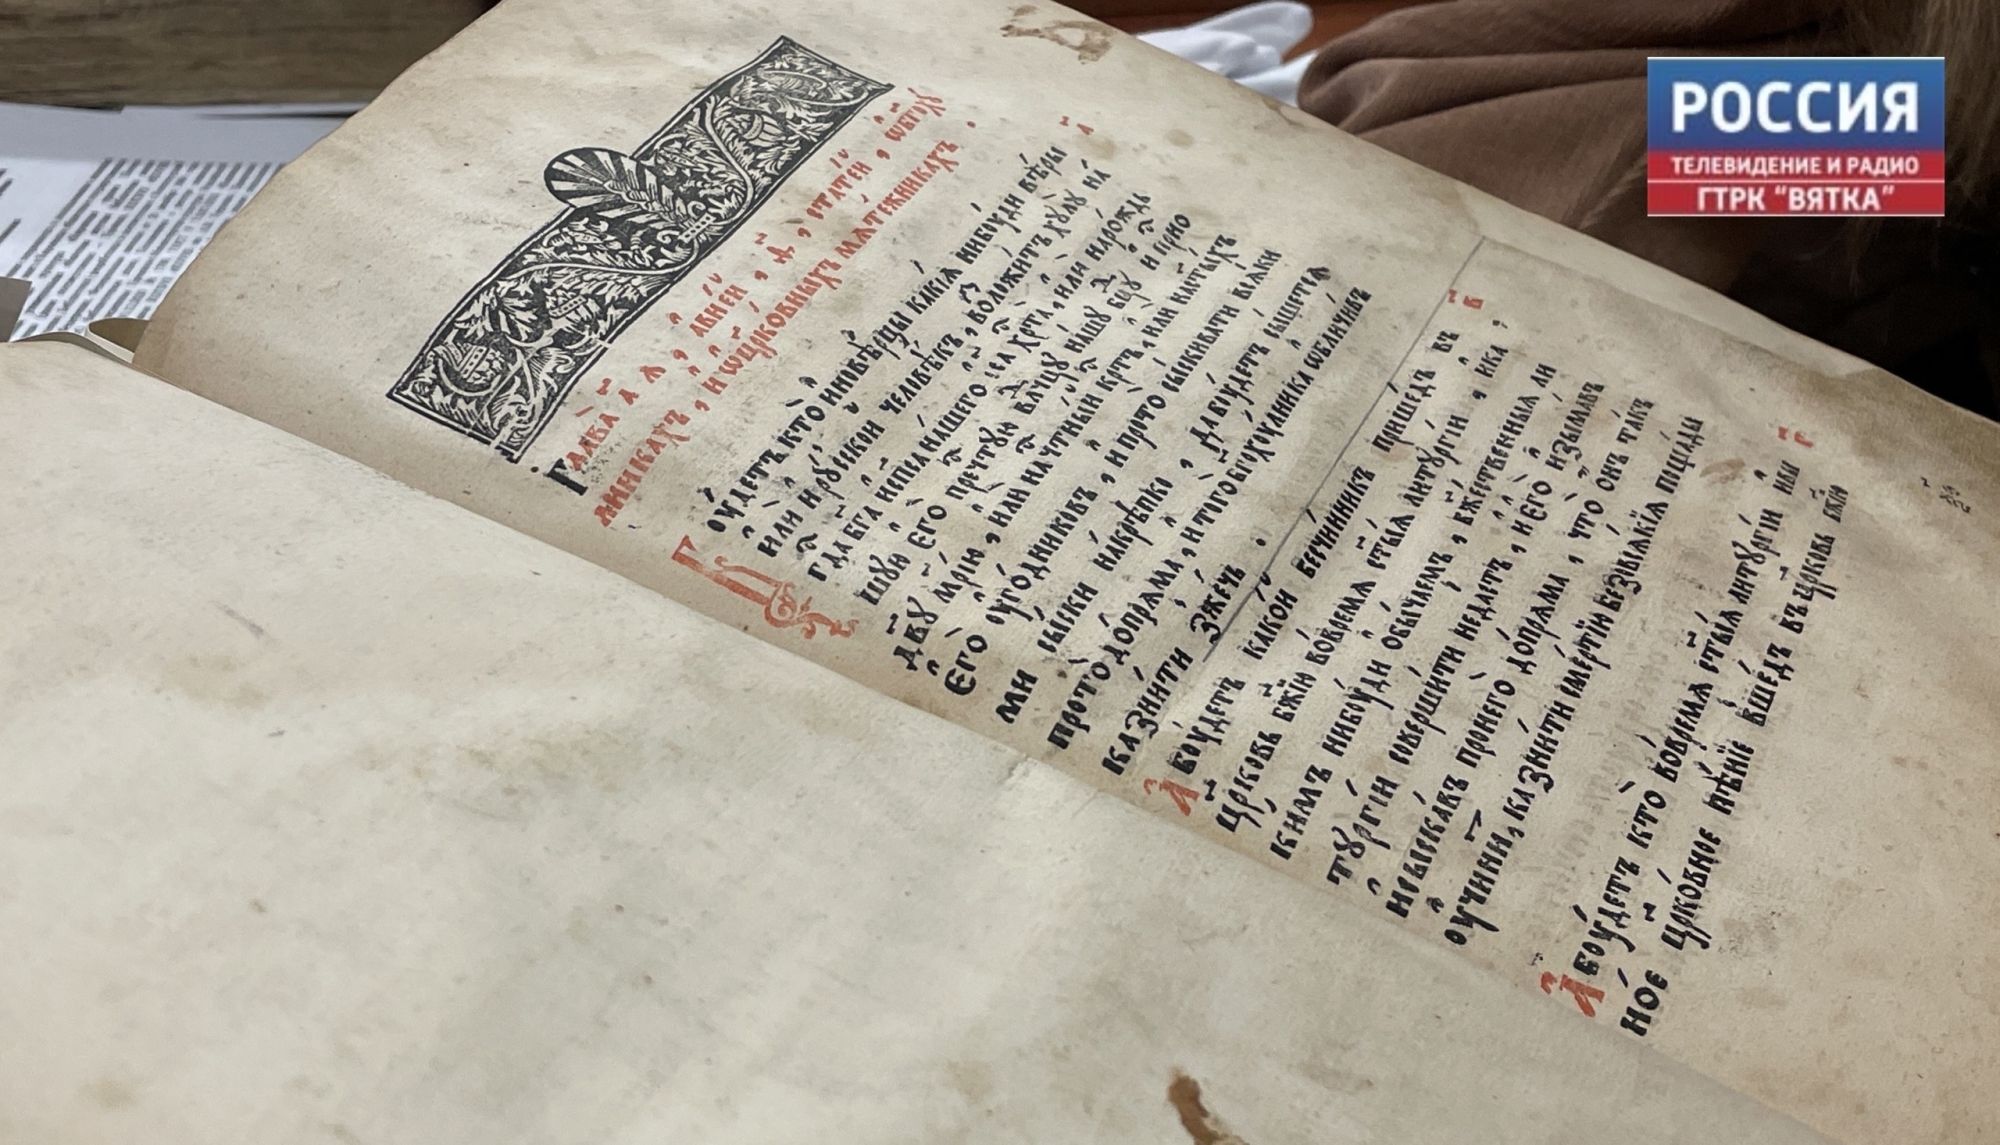 РОССИЯ
ТЕЛЕВИДЕНИЕ И РАДИО
ГТРК "ВЯТКА"
Глава̀ а҃ я, а в ней, д҃, статей, ѡ бг҃оху
лникахъ, и ѡ цр҃ковныхъ мятежникахъ.
а҃
Бꙋдетъ кто̀ иновѣрцы какія нибꙋди вѣры
и҆лѝ и рꙋской человѣкъ, воложитъ хꙋлꙋ на
гда бг҃а и сп҃са нашего іс҃а хрт҃а, и҆лѝ на рождь
шꙋю є҆го̀ преч҃тꙋю влⷣчцꙋ нашꙋ бц҃ꙋ и прⷭно
дв҃ꙋ мр҃їю, и҆лѝ на чⷭтный крⷭтъ, и҆лѝ на ст҃ыхъ
є҆го̀ оу҆годниковъ, и҆ про то̀ сыскивати всяки
ми сыски накрѣпко, да бꙋдетъ сыщется
про то̀ допряма, и того̀ бг҃охꙋлника ѡ҆бличивъ
казнити зжечь.
в҃
А бꙋдетъ какой бесчинникъ пришедъ въ
цр҃ковь бж҃їю во время ст҃ыя литꙋргїи, и҆ ка,
кимъ нибꙋди ѻ҆бычаемъ, бж҃ественныя ли
тꙋргїи совершити не дастъ, и є҆го̀ и҆зымавъ
и҆ сыскавъ про него̀ допряма, что ѻ҆нъ такъ
оу҆чинитъ, казнити смертїю безъ всякїя пощады
г҃
А бꙋдетъ кто̀ во время ст҃ыя литꙋргїи и҆лѝ и
ное цр҃ковное пѣнїе вшедъ въ цр҃ковь бж҃їю